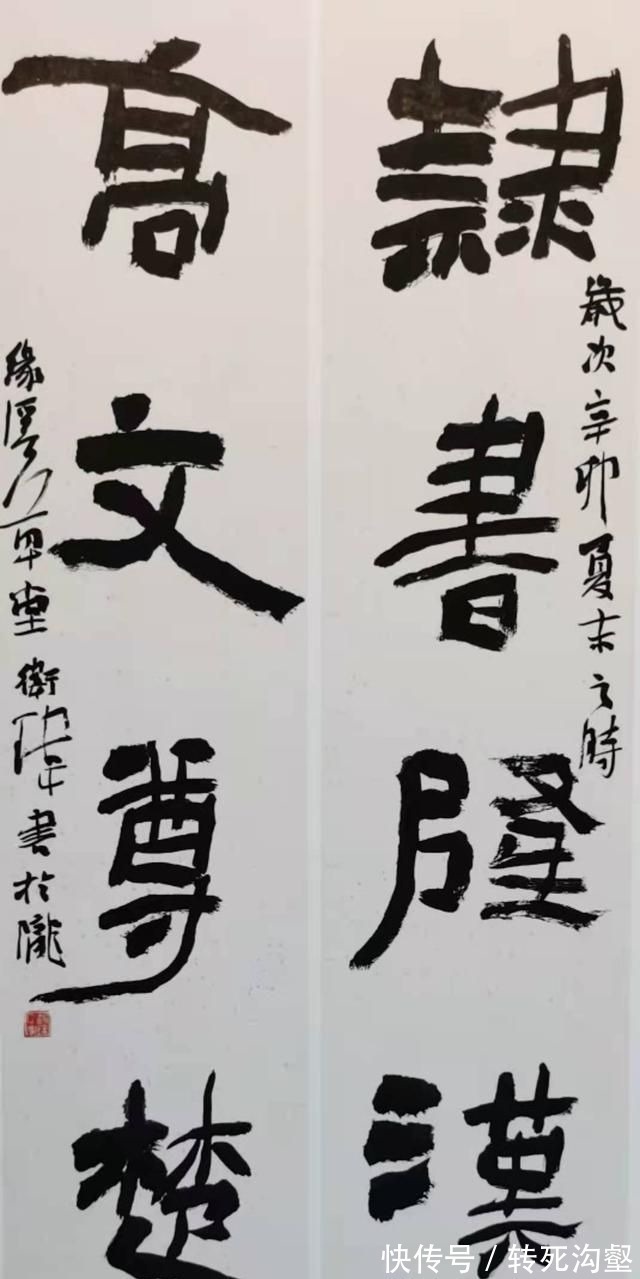 隸書隆漢
歲次辛卯夏末之時
髙文尊楚
緣草堂衛書於隴
快传号 / 转死沟壑